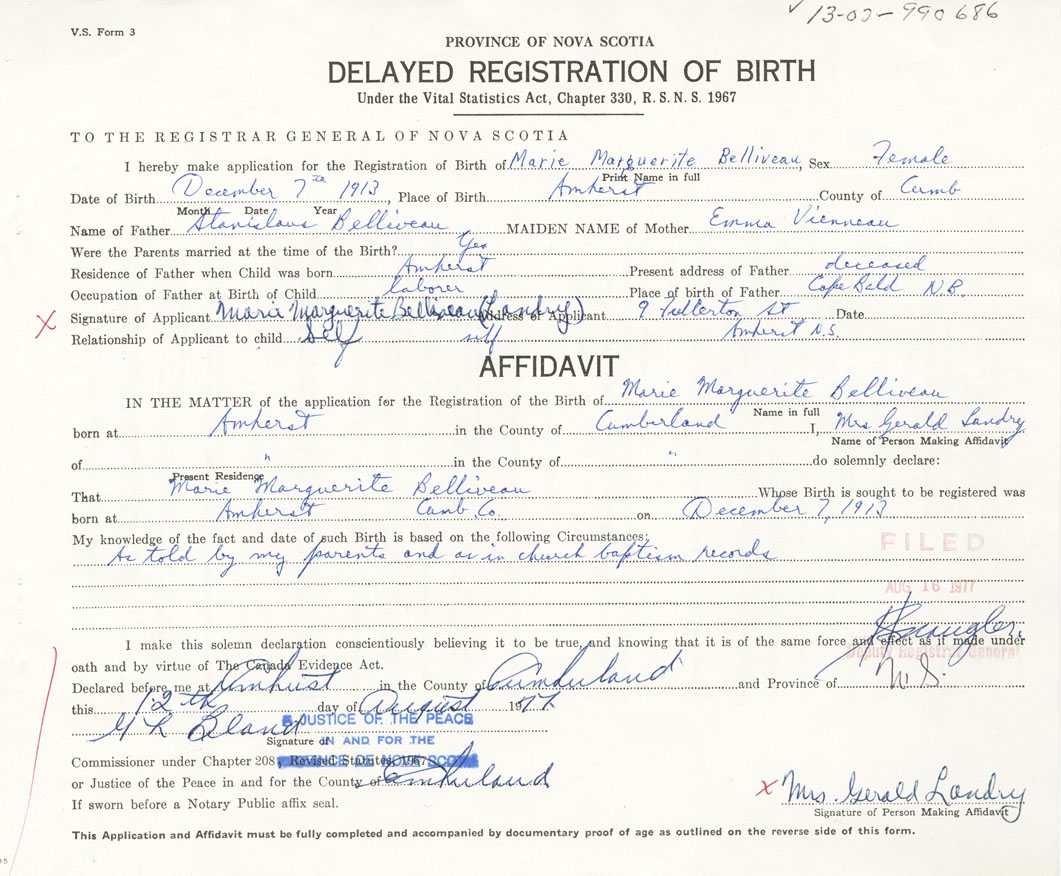 13-00-990686
V.S. Form 3
PROVINCE OF NOVA SCOTIA
DELAYED REGISTRATION OF BIRTH
Under the Vital Statistics Act, Chapter 330, R.S.N.S. 1967
TO THE REGISTRAR GENERAL OF NOVA SCOTIA
I hereby make application for the Registration of Birth of Marie Marguerite Belliveau Sex Female
Print Name in full
Date of Birth December 7th 1913, Place of Birth Amherst County of Cumb
Month Date Year
Name of Father Stanislaus Belliveau MAIDEN NAME of Mother Emma Vienneau
Were the Parents married at the time of the Birth? Yes
Residence of Father when Child was born Amherst Present address of Father deceased
Occupation of Father at Birth of Child laborer Place of birth of Father Cape Bald N.B.
X Signature of Applicant Marie Marguerite Belliveau (Landry) Address of Applicant 9 Fullerton St Date
Relationship of Applicant to child Self self Amherst N.S.
AFFIDAVIT
IN THE MATTER of the application for the Registration of the Birth of Marie Marguerite Belliveau
Name in full
born at Amherst in the County of Cumberland I, Mrs Gerald Landry
Name of Person Making Affidavit
of " in the County of " do solemnly declare:
Present Residence
That Marie Marguerite Belliveau Whose Birth is sought to be registered was
born at Amherst Cumb. Co. on December 7, 1913
My knowledge of the fact and date of such Birth is based on the following Circumstances:
As told by my parents and as in church baptism records
FILED
AUG 16 1977
Deputy Registrar General
I make this solemn declaration conscientiously believing it to be true, and knowing that it is of the same force and effect as if made under
oath and by virtue of The Canada Evidence Act.
Declared before me at Amherst in the County of Cumberland and Province of N.S.
this 12th day of August 1977
G R Bland
JUSTICE OF THE PEACE
Signature of
IN AND FOR THE
Commissioner under Chapter 208, Revised Statutes, 1967
PROVINCE OF NOVA SCOTIA
or Justice of the Peace in and for the County of Cumberland
If sworn before a Notary Public affix seal.
X Mrs. Gerald Landry
Signature of Person Making Affidavit
This Application and Affidavit must be fully completed and accompanied by documentary proof of age as outlined on the reverse side of this form.